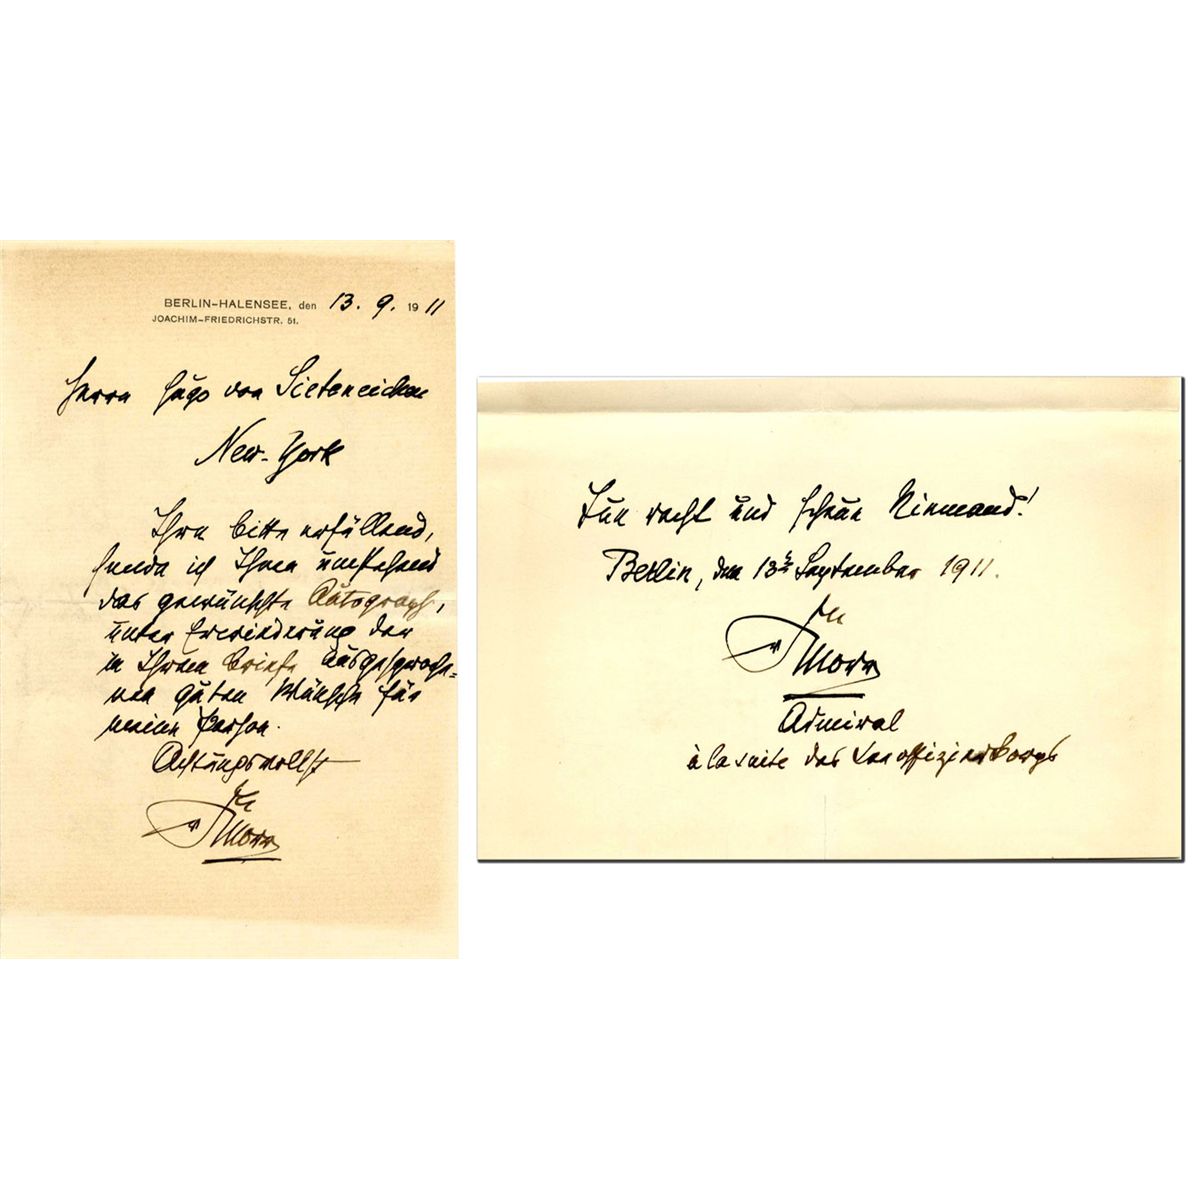 BERLIN-HALENSEE, den 13. 9. 1911
JOACHIM-FRIEDRICHSTR. 51.
Herrn Hugo von
New-York
Ihre Bitte erfüllend,
sende ich Ihnen umstehend
das gewünschte Autograph,
unter Erwiederung der
in Ihrem Briefe ausgesproche-
nen guten Wünsche für
meine Person.
Achtungsvollst
Tun recht und scheue Niemand!
Berlin, den 13ten September 1911.
Admiral
à la suite des Seeoffizierkorps